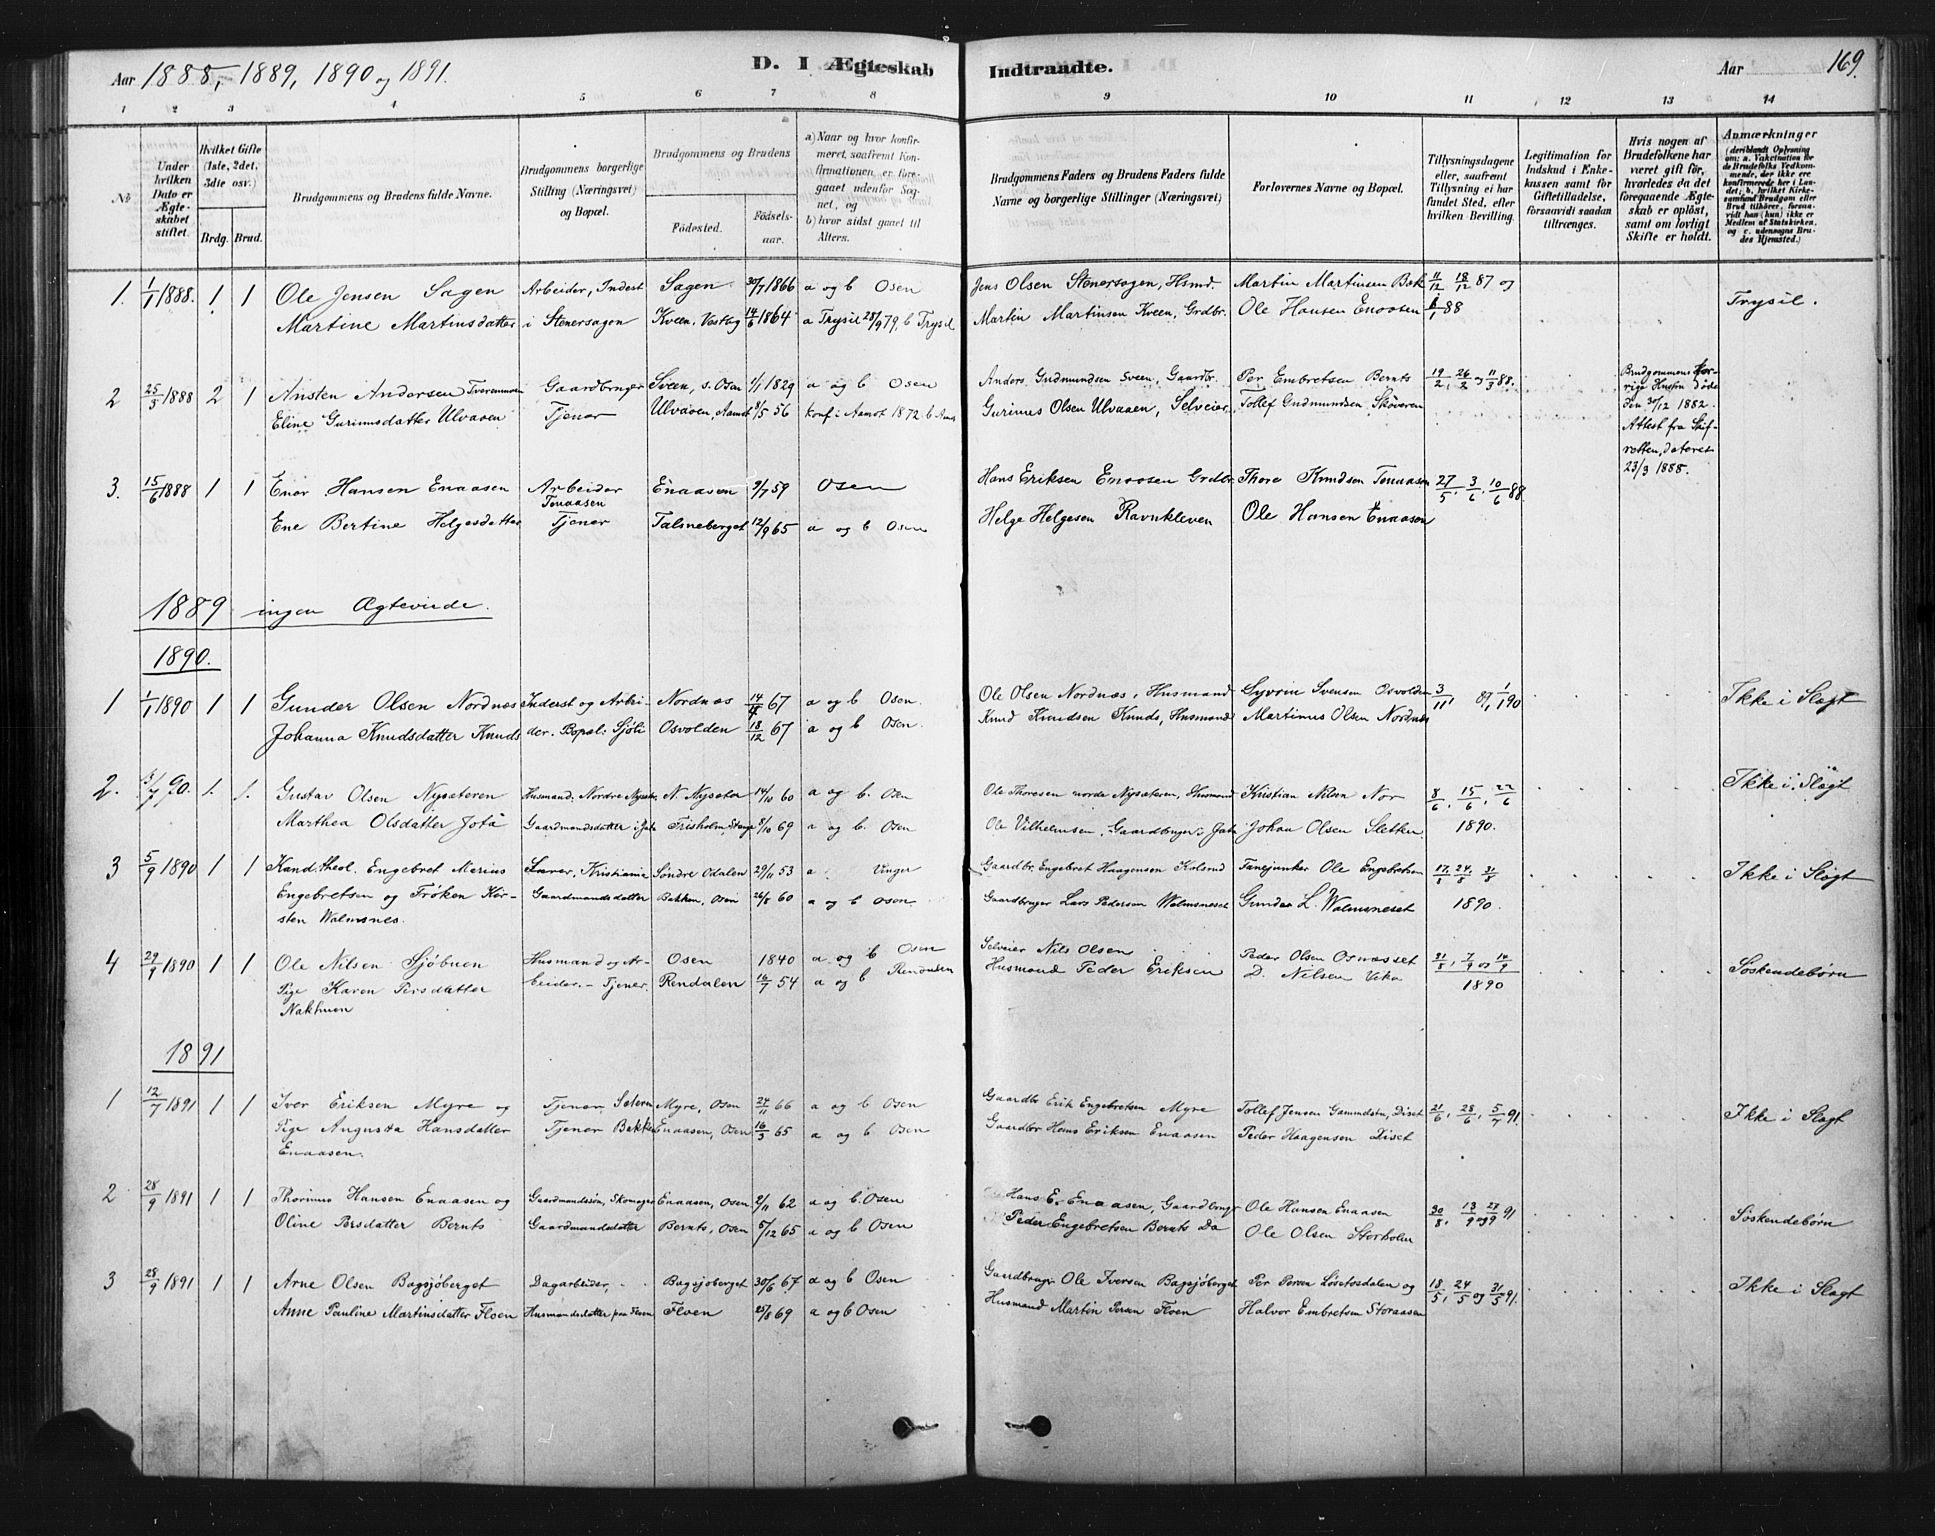 Aar 1888, 1889, 1890 og 1891.
D. I Ægteskab Indtraadte.
Aar 169.
1 2 3 4 5 6 7 8 9 10 11 12 13 14
No
Under hvilken Dato er Ægteskabet stiftet.
Hvilket Gifte (1ste, 2det, 3die osv.)
Brdg. Brud.
Brudgommens og Brudens fulde Navne.
Brudgommens borgerlige Stilling (Næringsvei) og Bopæl.
Brudgommens og Brudens
Fødested.
Fødselsaar.
a) Naar og hvor konfirmeret, saafremt Konfirmationen er foregaaet udenfor Sognet, og
b) hvor sidst gaaet til Alters.
Brudgommens Faders og Brudens Faders fulde Navne og borgerlige Stillinger (Næringsvei)
Forlovernes Navne og Bopæl.
Tillysningsdagene eller, saafremt Tillysning ei har fundet Sted, efter hvilken Bevilling.
Legitimation for Indskud i Enkekassen samt for Giftetilladelse, forsaavidt saadan tiltrænges.
Hvis nogen af Brudefolkene har været gift før, hvorledes da det foregaaende Ægteskab er opløst, samt om lovligt Skifte er holdt.
Anmærkninger (deriblandt Oplysning om: a. Vakcination for de Brudefolks Vedkommende, der ikke ere konfirmerede her i Landet; b. hvilket Kirkesamfund Brudgom eller Brud tilhører, forsaavidt han (hun) ikke er Medlem af Statskirken, og c. udensogns Brudes Hjemsted.)
1. 1/1 1888. 1 1 Ole Jensen Sagen Arbeider, Inderst Sagen 30/7 1866 a og b Osen Jens Olsen Stenersagen, Hsmd. Martin Martinsen Bak 11/12 18/12 87 og Trysil.
Martine Martinsdatter i Stenersagen Kveen, Vestby 14/6 1864 a Trysil 28/9 79, b Trysil Martin Martinsen Kveen, Grdbr. Ole Hansen Enaasen 1/1 88
2 25/3 1888 2 1 Ansten Andersen Tveranmoen Gaardbruger Sveen, s. Osen 1/1 1829 a og b Osen Anders Gudmundsen Sveen, Gaardbr. Per Embretsen Bernts 19/2, 26/2 og 11/3 88. Brudgommens forrige Hustru døde
Eline Gurinusdatter Ulvaaen Tjener Ulvaaen, Aamot 8/5 56 konf. i Aamot 1872 b Aamot Gurinus Olsen Ulvaaen, Selveier Tollef Gudmundsen Skøveren den 30/12 1882.
Attest fra Skifretten, dateret
23/3 1888.
3. 15/6 1888 1 1 Enor Hansen Enaasen Arbeider Enaasen 9/7 59 Osen Hans Eriksen Enaasen Grdbr. Thore Knudsen Tenaasen 27/5, 3/6, 10/6 88.
Ene Bertine Helgesdatter Tenaasen Tjener Talsneberget 12/9 65 a og b Osen Helge Helgesen Ravnkleven Ole Hansen Enaasen
1889 ingen Ægteviede.
1890.
1 1/1 1890 1 1 Gunder Olsen Nordnæs Inderst og Arbei- Nordnæs 14/4 67 a og b Osen. Ole Olsen Nordnæs, Husmand Syvrin Svensen Osvolden 3/11, 1/1 90 Ikke i Slægt
Johanna Knudsdatter Knuds der. Bopæl: Sjøli Osvolden 18/12 67 a og b Osen. Knud Knudsen Knuds, Husmand Martinus Olsen Nordnæs
2. 3/7 90. 1. 1. Gustav Olsen Nysæteren Husmand, Nordre Nysæter N. Nysæter 14/10 60 a og b. Osen Ole Thoresen nordre Nysæteren, Husmand Kristian Nilsen Nor 8/6, 15/6, 22/6 Ikke i Slægt
Marthea Olsdatter Jota Gaardmandsdatter i Jota Frisholm, Stange 8/10 69 a og b. Osen Ole Vilhelmsen, Gaardbruger i Jota Johan Olsen Sletten 1890.
3 5/9 1890 1 1 Kand. theol. Engebret Marius Lærer, Kristiania Søndre Odalen 29/11 53 a Vinger Gaardbr. Engebret Haagensen Kolsrud Fanejunker Ole Engebretsen 17/8, 24/8, 31/8 Ikke i Slægt
Engebretsen og Frøken Kirsten Walmsnes. Gaardmandsdatter Bakken, Osen 26/8 60 a og b Osen Gaardbruger Lars Pedersen Walmsneset Gunder L. Walmsneset 1890.
4 29/9 1890 1 1 Ole Nilsen Sjøbuen Husmand og Ar- Osen 1840 a og b Osen Selveier Nils Olsen Peder Olsen Osnæsset 31/8, 7/9 og 14/9 Søskendebørn
Pige Karen Persdatter beider. - Tjener. Rendalen 16/7 54 a og b Rendalen Husmand Peder Eriksen D. Nilsen Veka 1890
Nakhuen
1891
1 12/7 1891 1 1 Iver Eriksen Myre og Tjener, Sætern Myre, Osen 24/11 66 a og b Osen Gaardbr. Erik Engebretsen Myre Tollef Jensen Gammelstu, Diset 21/6, 28/6, 5/7 91. Ikke i Slægt
Pige Augusta Hansdatter Tjener Bakken Enaasen, Osen 16/3 65 a og b Osen Gaardbr Hans Eriksen Enaasen Peder Haagensen Diset
Enaasen.
2 28/9 1891 1 1 Thorinus Hansen Enaasen og Gaardmandssøn, Skomager Enaasen, Osen 2/11 62 a og b. Osen Hans E. Enaasen, Gaardbruger Ole Hansen Enaasen 30/8, 13/9 og 27/9 91 Søskendebørn
Oline Persdatter Bernts Gaardmandsdatter Bernts, Osen 5/12 65 a og b Osen Peder Engebretsen Bernts Do Ole Olsen Storholm
3 28/9 1891 1 1 Arne Olsen Bagsjøberget Dagarbeider, Bagsjøberget 30/6 67 a og b Osen Gaardbruger Ole Iversen Bagsjøberget Per Persen Løsetosdalen og 18/5, 24/5 og 31/5 91. Ikke i Slægt
Anne Pauline Martinsdatter Floen Husmandsdatter paa Floen Floen 25/8 69 a og b Osen Husmand Martin Persen Floen Halvor Embretsen Storaasen